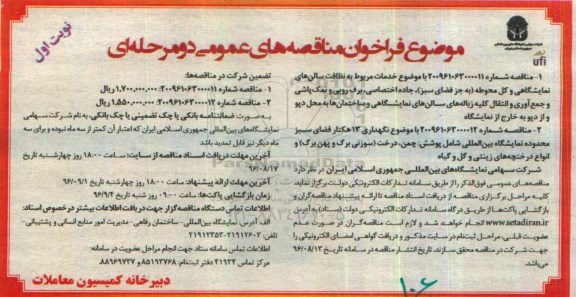 نوبت اول
موضوع فراخوان مناقصه های عمومی دو مرحله ای
ufi
۱- مناقصه شماره ۲۰۰۹۶۱۰۶۲۰۰۰۰۱۱ با موضوع خدمات مربوط به نظافت سالن های
نمایشگاهی و کل محوطه (به جز فضای سبز)، جاده اختصاصی، برف روبی و نمک پاشی
و جمع آوری و انتقال کلیه زباله های سالن های نمایشگاهی و ساختمان ها به محل دپو
و از دپو به خارج از نمایشگاه
۲- مناقصه شماره ۲۰۰۹۶۱۰۶۲۰۰۰۰۱۲ با موضوع نگهداری ۱۳ هکتار فضای سبز
محدوده نمایشگاه بین المللی شامل پوشش: چمن، درخت (سوزنی برگ و پهن برگ) و
انواع درختچه های زینتی و گل و گیاه
شرکت سهامی نمایشگاه های بین المللی جمهوری اسلامی ایران در نظر دارد
مناقصه های عمومی فوق الذکر را از طریق سامانه تدارکات الکترونیکی دولت برگزار نماید.
کلیه مراحل برگزاری مناقصه از دریافت اسناد مناقصه تا ارائه پیشنهاد مناقصه گران و
بازگشایی پاکت ها از طریق درگاه سامانه تدارکات الکترونیکی دولت (ستاد) به آدرس
www.setadiran.ir انجام خواهد شد و لازم است مناقصه گران در صورت عدم
عضویت قبلی، مراحل ثبت نام در سایت مذکور و دریافت گواهی امضای الکترونیکی را
جهت شرکت در مناقصه محقق سازند. تاریخ انتشار مناقصه در سامانه تاریخ ۹۶/۰۸/۱۳
تضمین شرکت در مناقصه ها:
۱- مناقصه شماره ۲۰۰۹۶۱۰۶۲۰۰۰۰۱۱: ۱.۷۰۰.۰۰۰.۰۰۰ ریال
۲- مناقصه شماره ۲۰۰۹۶۱۰۶۲۰۰۰۰۱۲: ۱.۵۵۰.۰۰۰.۰۰۰ ریال
به صورت ضمانتنامه بانکی یا چک تضمینی یا چک بانکی، به نام شرکت سهامی
نمایشگاه های بین المللی جمهوری اسلامی ایران که اعتبار آن کمتر از سه ماه نبوده و برای سه
ماه دیگر نیز قابل تمدید باشد
آخرین مهلت دریافت اسناد مناقصه از سایت: ساعت ۱۸:۰۰ روز چهارشنبه تاریخ
۹۶/۰۸/۱۷
آخرین مهلت ارائه پیشنهاد: ساعت ۱۸:۰۰ روز چهارشنبه تاریخ ۹۶/۰۹/۱
زمان بازگشایی پاکت ها: ساعت ۰۹:۰۰ روز شنبه تاریخ ۹۶/۹/۴
اطلاعات تماس دستگاه مناقصه گزار جهت دریافت اطلاعات بیشتر در خصوص اسناد:
الف) آدرس نمایشگاه بین المللی- ساختمان رفاهی- مدیریت امور منابع انسانی و پشتیبانی
تلفن: ۲۱۹۱۲۳۵۲-۲۱۹۱۷۶۰۲
اطلاعات تماس سامانه ستاد جهت انجام مراحل عضویت در سامانه:
مرکز تماس ۴۱۹۳۴ دفتر ثبت نام: ۸۵۱۹۳۷۶۸ و ۸۸۹۶۹۷۳۷
دبیرخانه کمیسیون معاملات
۱۰۶